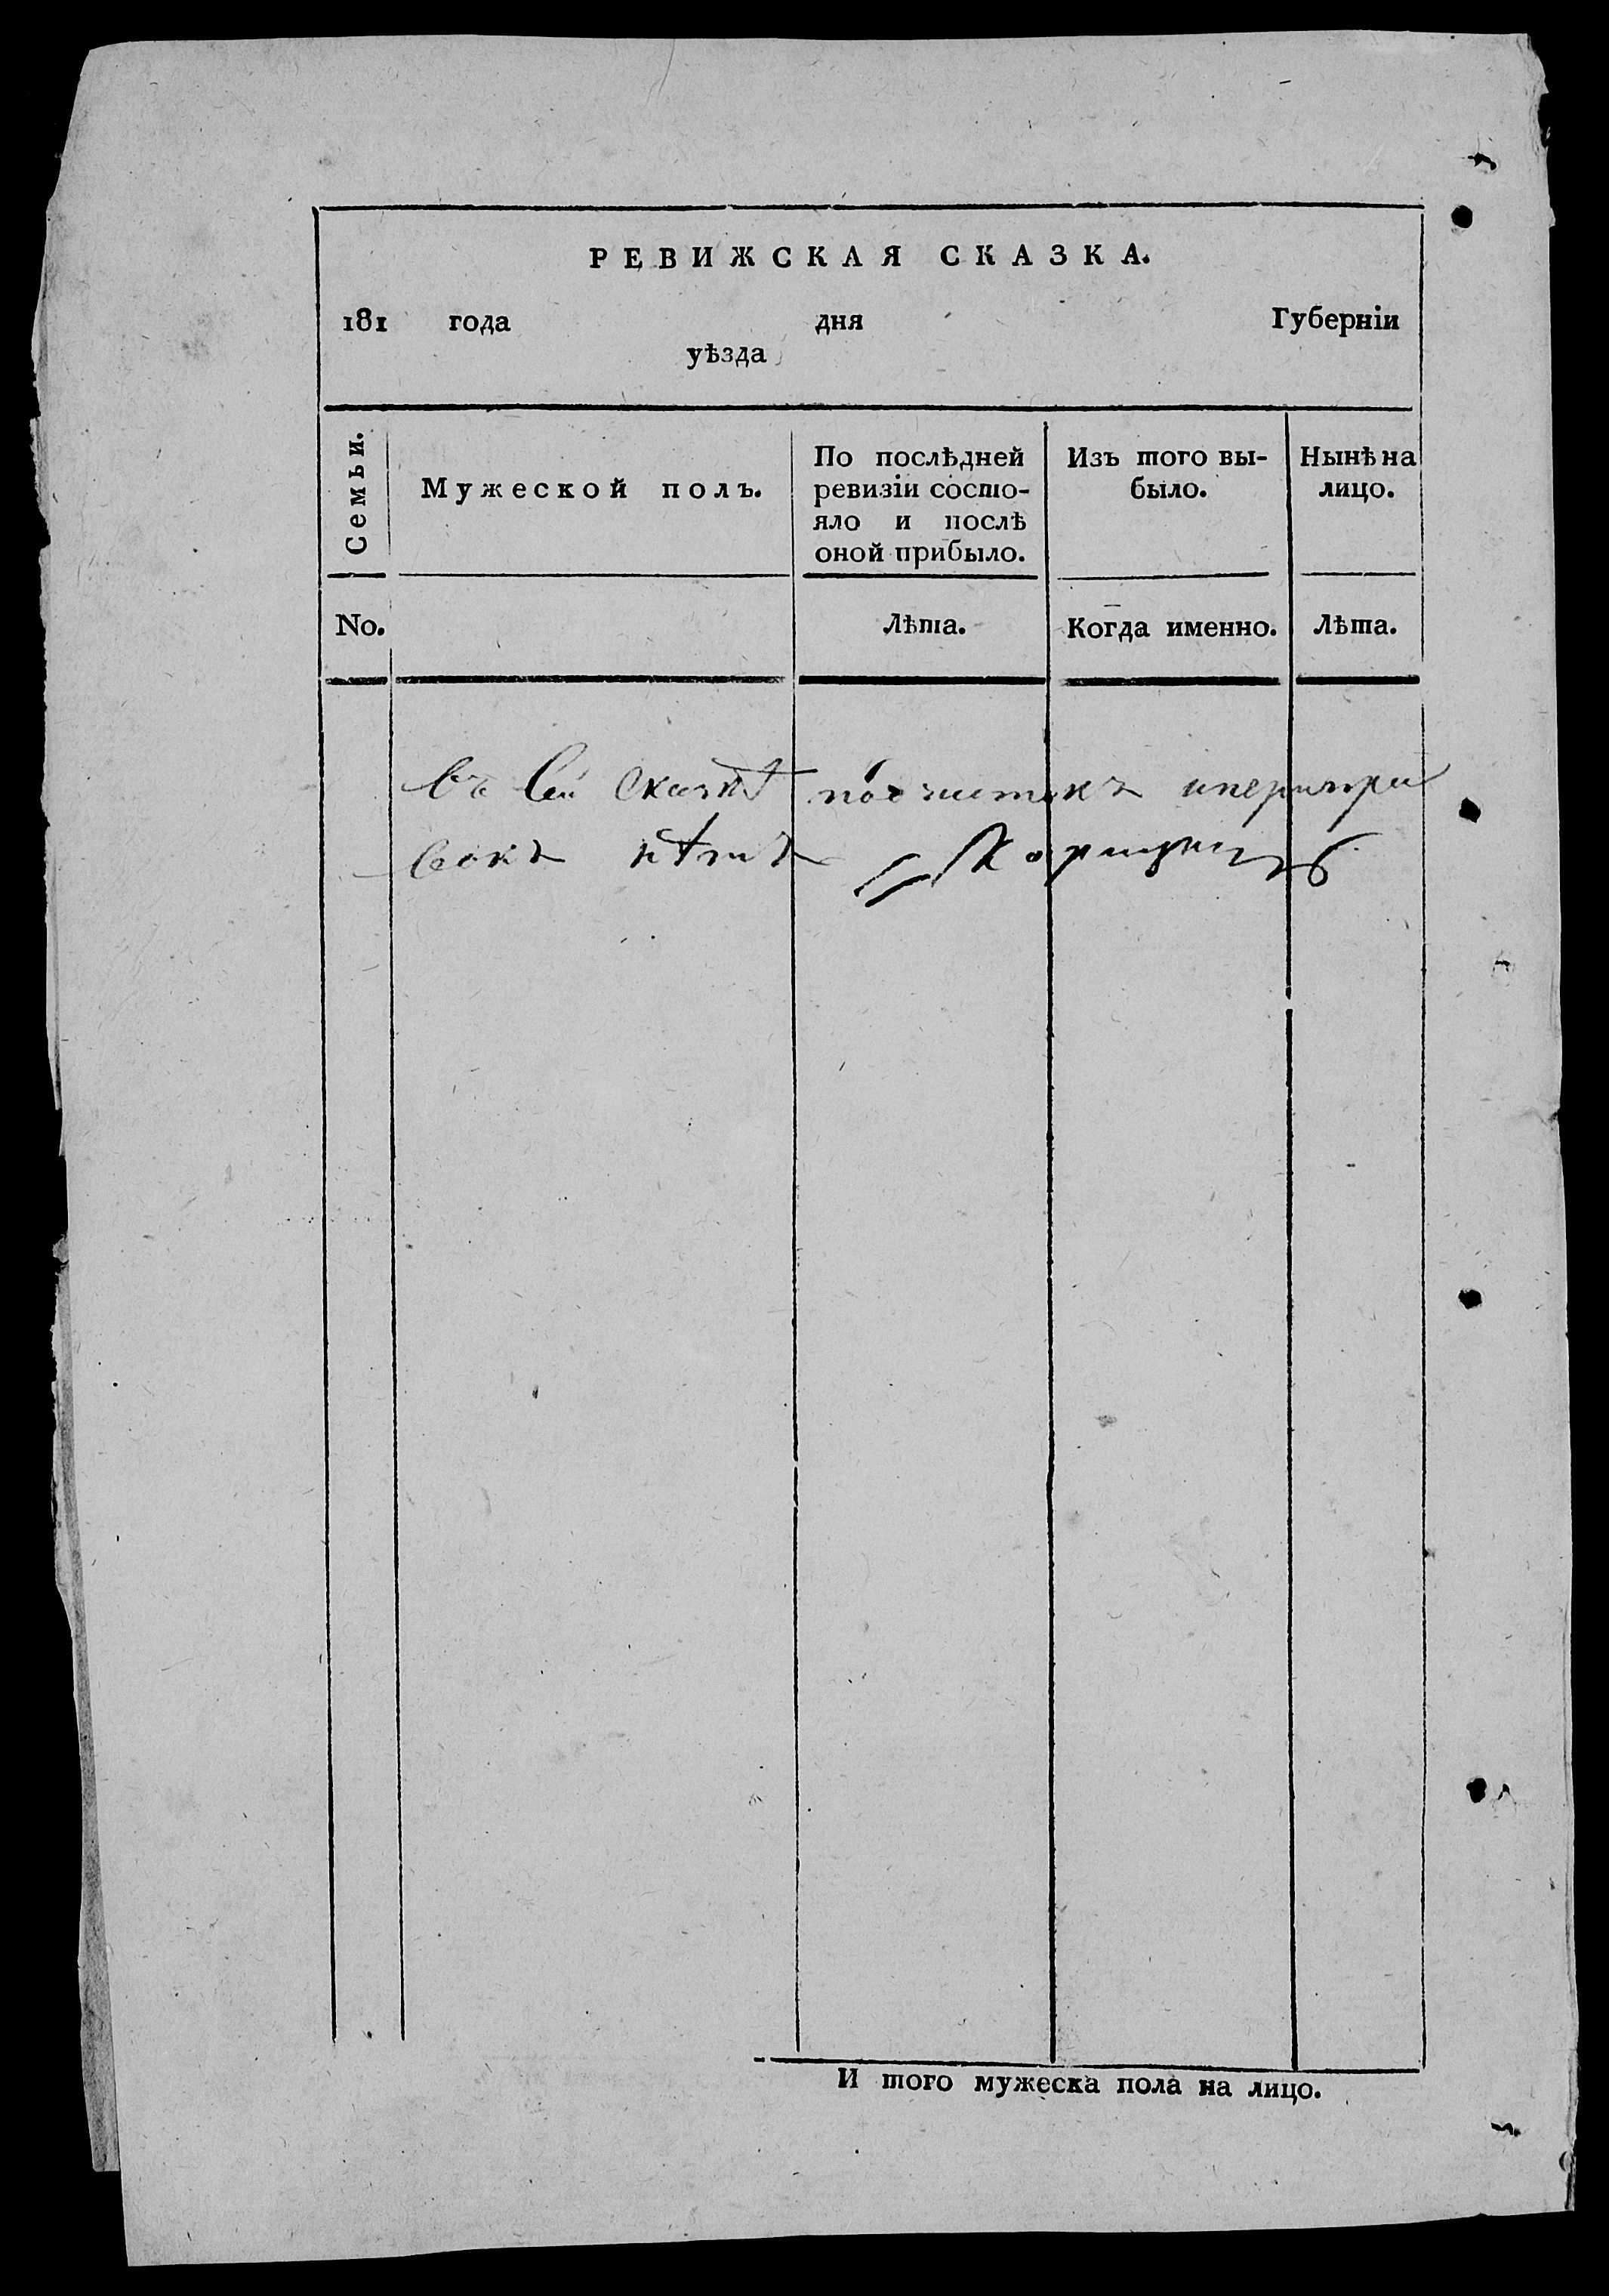 РЕВИЖСКАЯ СКАЗКА.
181 года дня Губерніи
уѣзда
Семьи.
Мужеской полъ.
По послѣдней
ревизіи состо-
яло и послѣ
оной прибыло.
Изъ того вы-
было.
Нынѣ на
лицо.
No.
Лѣта.
Когда именно.
Лѣта.
въ сей сказкѣ подчистокъ и
нѣтъ
И того мужеска пола на лицо.